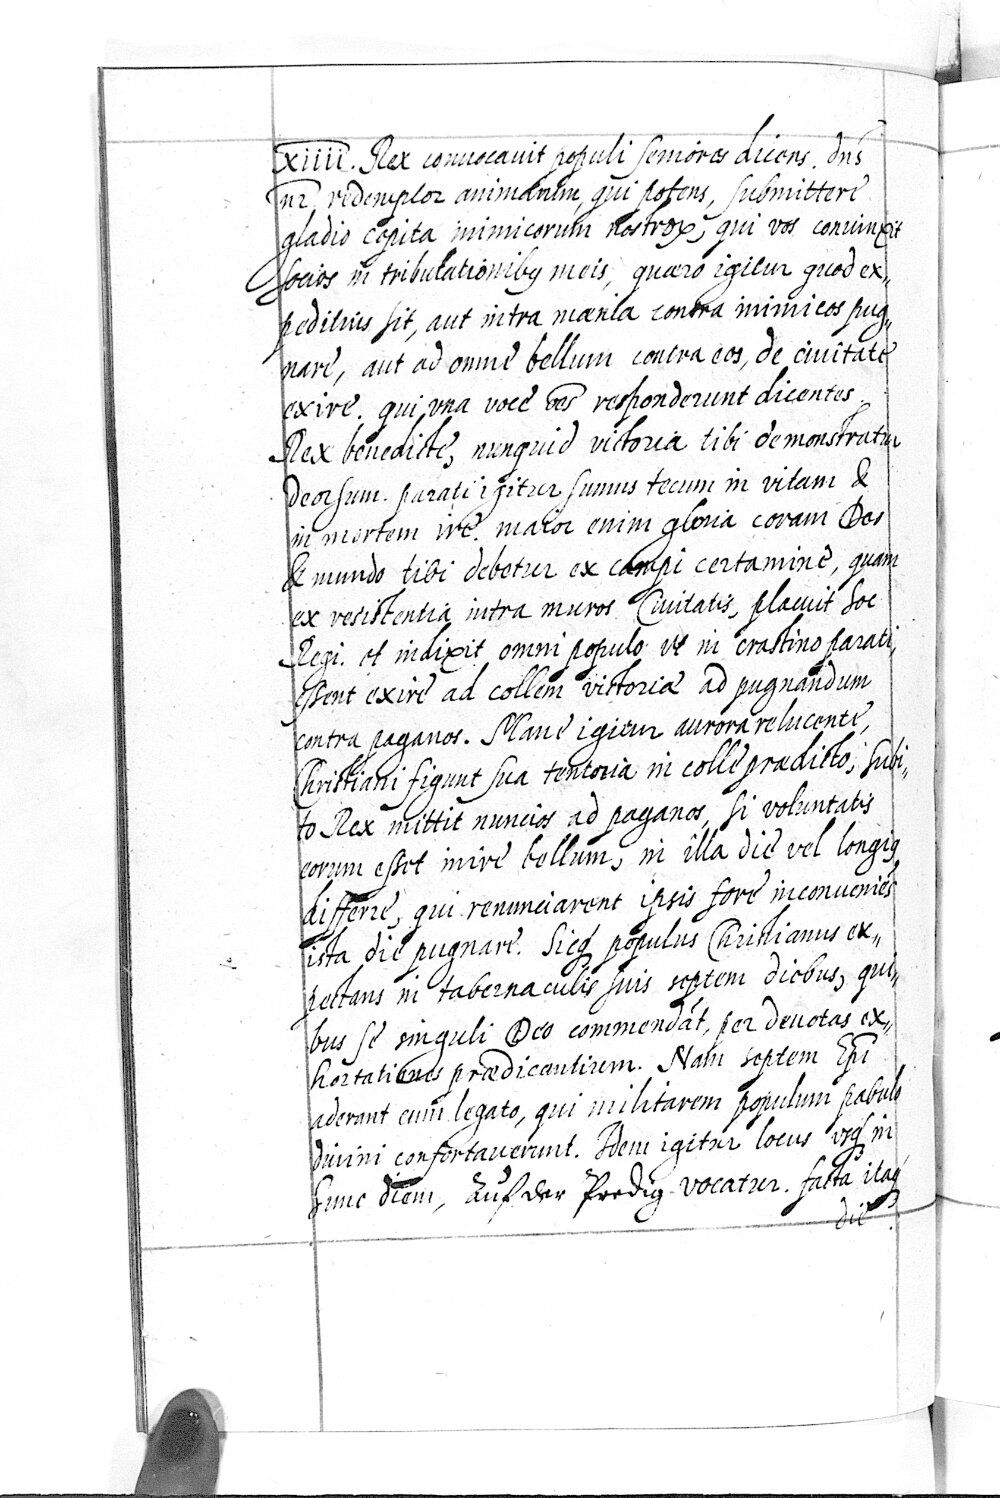 xiiii. Rex conuocauit populi seniores dicens. dns̄
nr̄, redemptor animarum, qui potens, submittere
gladio capita inimicorum nostroꝝ, qui vos coniunxit
socios in tribulationibꝰ meis, quæro igitur quod ex„
peditius sit, aut intra mænia contra inimicos pug„
nare, aut ad omne bellum contra eos, de ciuitate
exire. qui vna voce oēs responderunt dicentes.
Rex benedicte, nunquid victoria tibi demonstratur
deorsum. parati igitur sumus tecum in vitam &
in mortem ire. maior enim gloria coram Deo
& mundo tibi debetur ex campi certamine, quam
ex resistentia intra muros Ciuitatis, placuit hoc
Regi. et indixit omni populo vt in crastino parati,
essent exire ad collem victoriæ ad pugnandum
contra paganos. Mane igitur aurora relucente,
Christiani figunt sua tentoria in colle prædicto, subi„
to Rex mittit nuncios ad paganos, si voluntatis
eorum esset inire bellum, in illa die vel longiꝰ
differre, qui renunciarent ipsis fore inconueniēs
ista die pugnare. Sicq́ populus Christianus ex„
pectans in tabernaculis suis septem diebus, qui„
bus se singuli Deo commendāt, per deuotas ex„
hortationes prædicantium. Nam septem Ep̄i
aderant cum legato, qui militarem populum pabulo
diuini confortauerunt. Idem igitur locus vsq́ in
hunc diem, Auf der Predig vocatur. facta itaq́
die